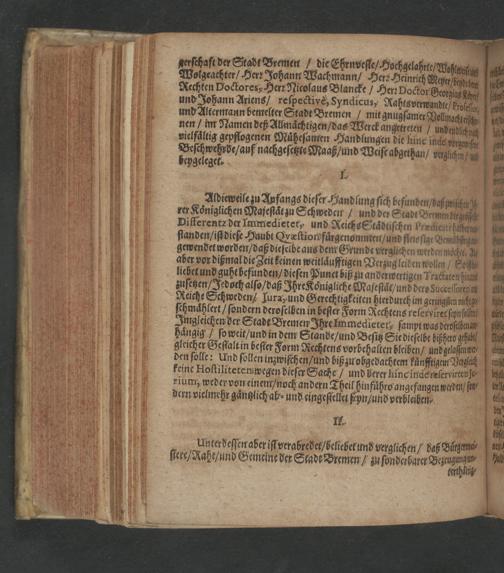 gerschaft der Stadt Bremen / die Ehrnveste/ Hochgelahrte/
Wolgeachter/ Herr Johann Wachmann/ Herr Heinrich Meyer/
Rechten Doctores, Herr Nicolaus Blancke / Herr Doctor Georgius
und Johann Ariens/ respectivè, Syndicus, Rahtsverwandte/
und Altermann bemelter Stadt Bremen / mit gnugsamer Vollmacht
nen / im Namen deß Allmächtigen/ das Werck angetreten / und endlich nach
vielfältig gepflogenen Mühesamen Handlungen die hinc inde
Beschwehrde/ auf nachgesetzte Maaß/ und Weise abgethan/ verglichen/ und
beygeleget.
I.
Aldieweile zu Anfangs dieser Handlung sich befunden/ daß zwischen
rer Königlichen Majestät zu Schweden / und der Stadt Bremen die
Differentz der Immedietet, und Reichs Städtischen Prædicent halber
standen/ ist diese Haubt Qvæstion fürgenommen/ und fleissige Bemühung
gewendet worden/ daß dieselbe aus dem Grunde verglichen werden möchte.
aber vor dißmal die Zeit keinen weitläufftigen Verzug leiden wollen /
liebet und guht befunden/ diesen Punct biß zu anderwertigen Tractaten
zusetzen/ Jedoch also/ daß Ihre Königliche Majestät/ und dero Successoren am
Reiche Schweden/ Jura, und Gerechtigkeiten hierdurch im geringsten nicht ge-
schmählert / sondern deroselben in bester Form Rechtens reserviret seyn
Imgleichen der Stadt Bremen Ihre Immedietet, sampt was derselben an-
hängig / so weit/ und in dem Stande/ und Besitz Sie dieselbe bißhero gehabt/
gleicher Gestalt in bester Form Rechtens vorbehalten bleiben/ und gelassen wer-
den solle: Und sollen inzwischen/ und biß zu obgedachtem künfftigem Vergleich
keine Hostiliteten wegen dieser Sache / und derer hinc inde reservirten Ju-
rium, weder von einem/ noch andern Theil hinführo angefangen werden/ son-
dern vielmehr gäntzlich ab- und eingestellet seyn/ und verbleiben.
II.
Unterdessen aber ist verabredet/ beliebet und verglichen / daß Bürgermei-
stere/ Raht/ und Gemeine der Stadt Bremen / zu sonderbarer Bezeugung